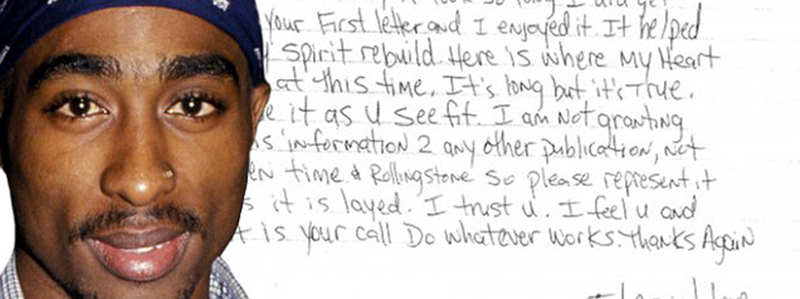 your First letter and I enjoyed it. It helped
Spirit rebuild. Here is where My Heart
at this time. It's long but it's True.
it as U see fit. I am Not granting
information 2 any other publication, not
time & Rollingstone so please represent it
it is layed. I trust u. I feel u and
is your call Do whatever works. Thanks Again